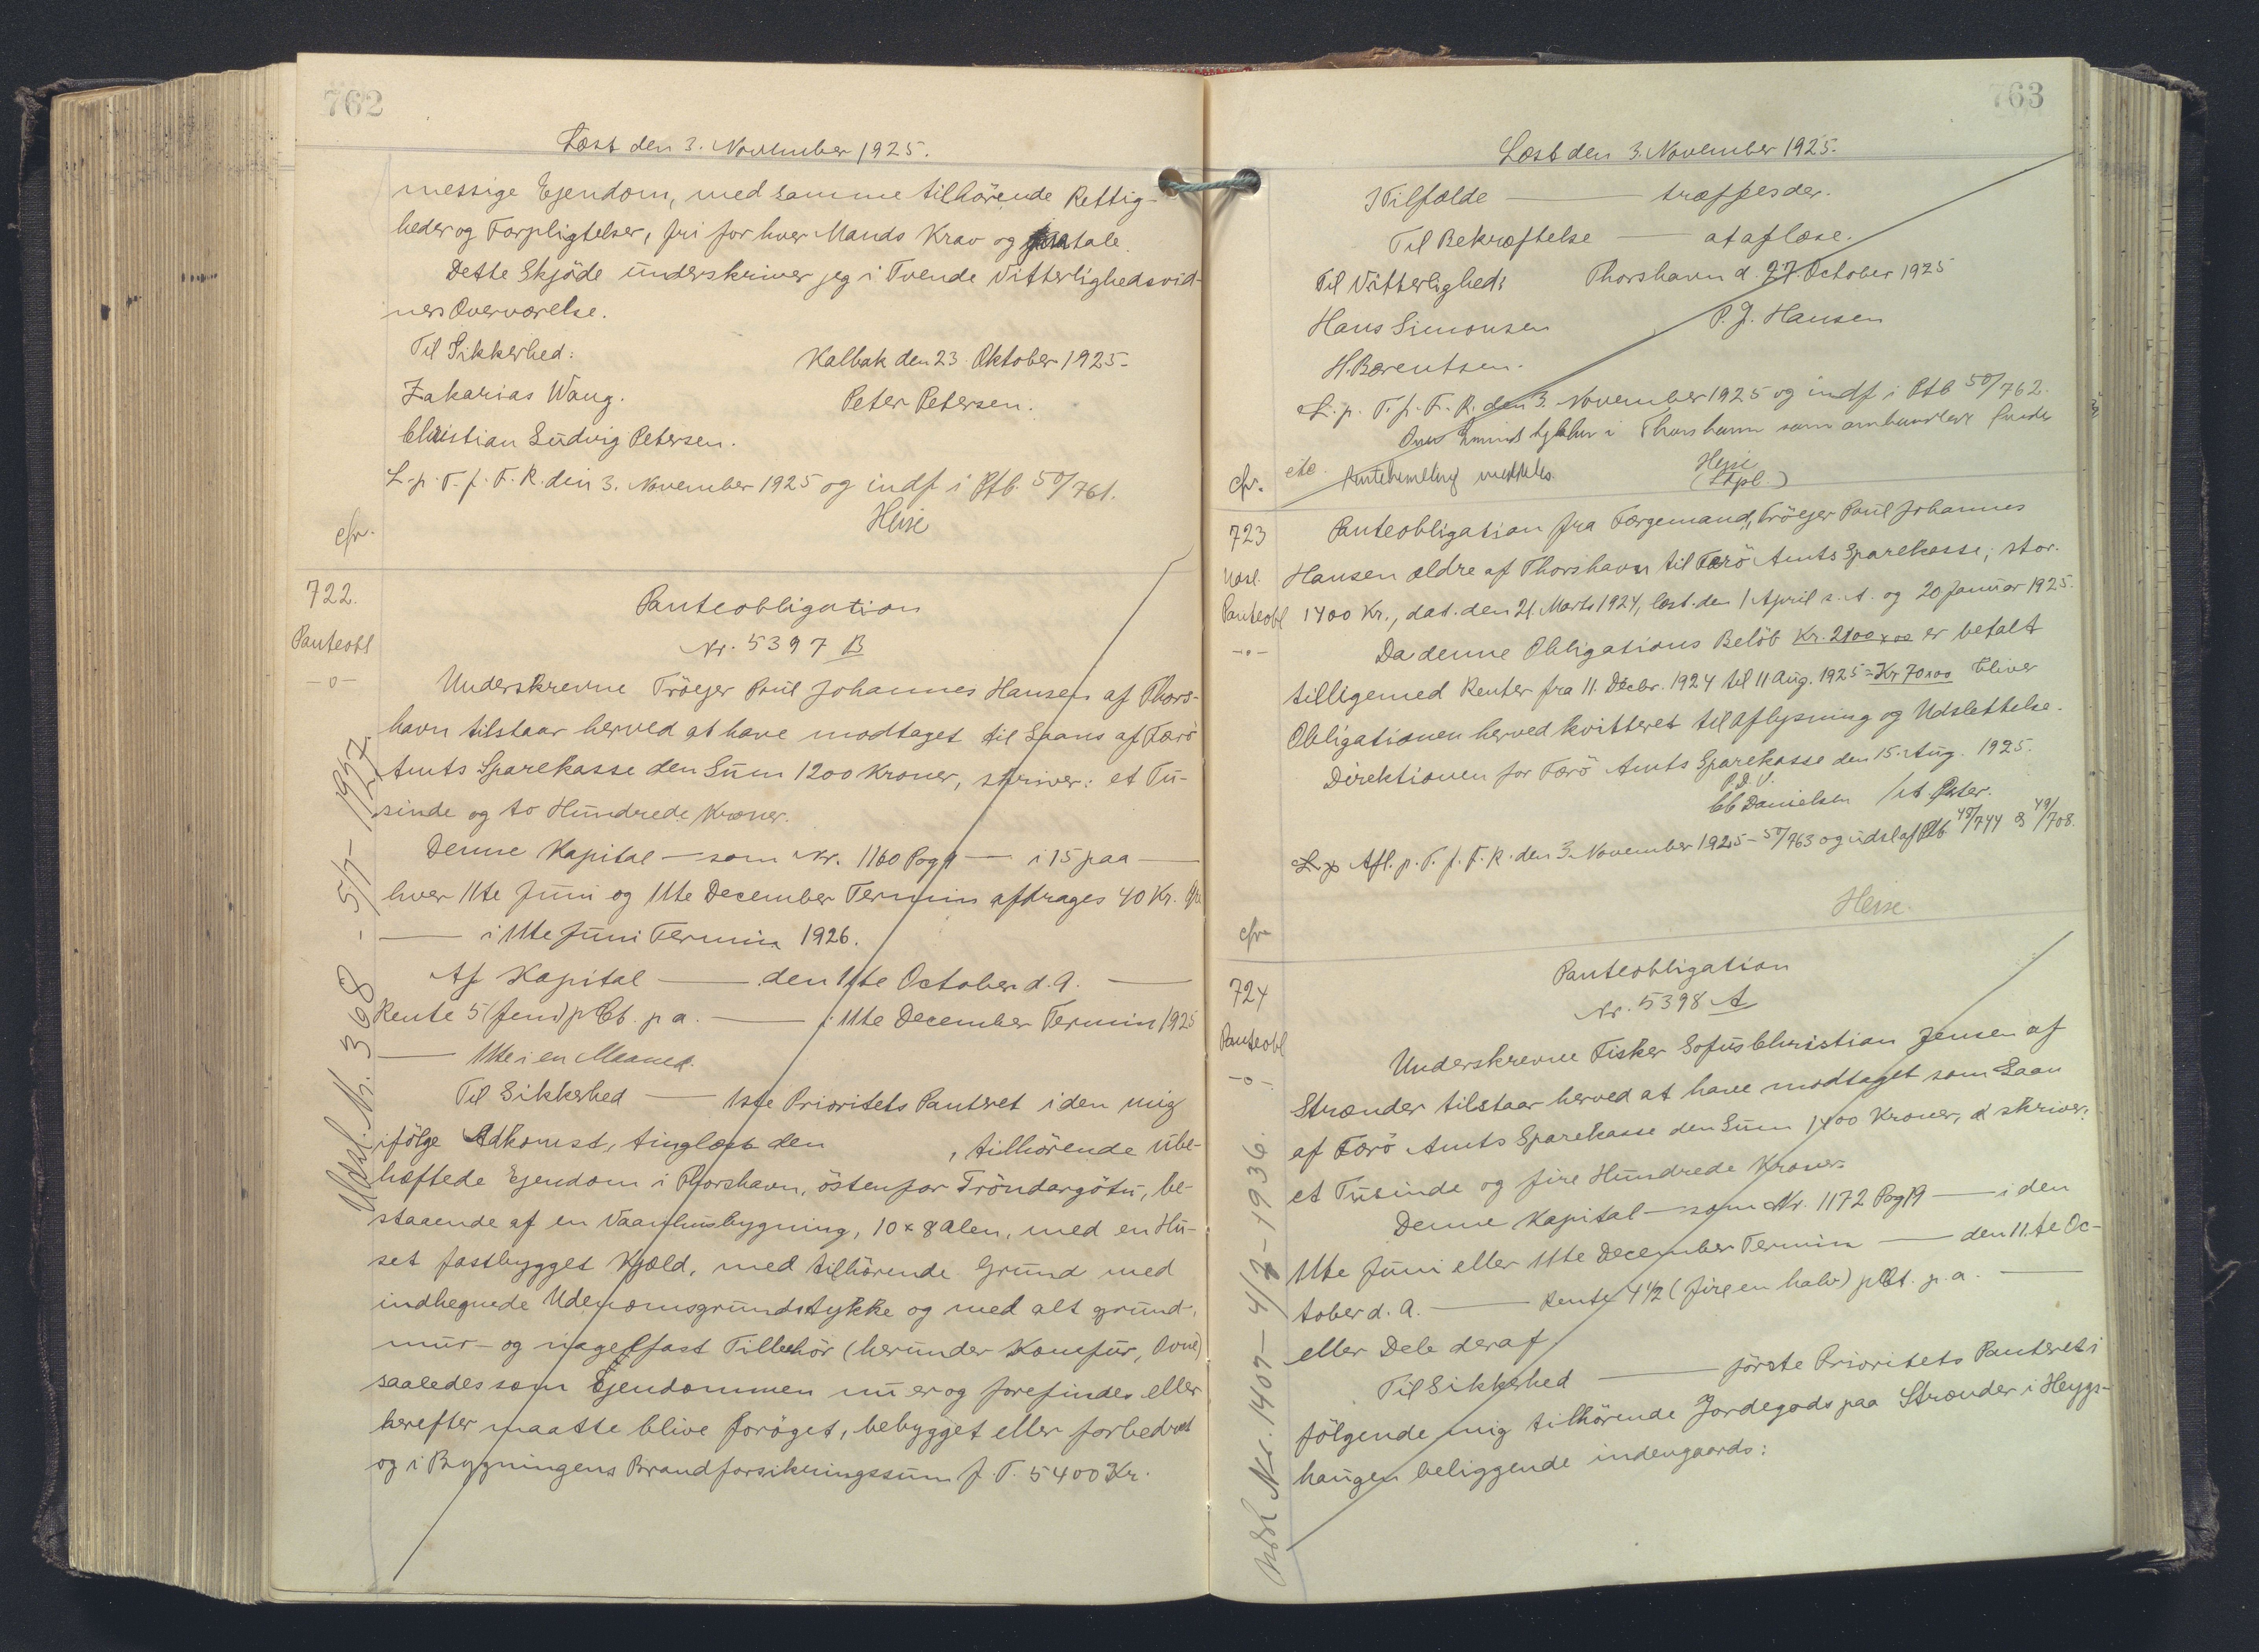 762
Læst den 3. November 1925.
messige Ejendom, med samme tilhörende Rettig-
heder og Forpligtelser, fri for hver Mands Krav og paatale.
Dette Skjöde underskriver jeg i Tvende Vitterlighedsvid-
ners Overværelse.
Til Sikkerhed:
Kalbak den 23. Oktober 1925.
Zakarias Wang.
Peter Petersen.
Christian Ludvig Petersen.
L. p. T. f. F. R. den 3. November 1925 og indf i Ptb. 50/761.
Heise
cfr.
722.
Panteobl
-o-
Panteobligation
Nr. 5397 B
Underskrevne Tröejer Poul Johannes Hansen af Thors-
havn tilstaar herved at have modtaget til Laans af Færö
Amts Sparekasse den Sum 1200 Kroner, skriver: et Tu-
sinde og to Hundrede Kroner.
Denne Kapital — som Nr. 1160 Pag 9 — i 15 paa —
hver 11te Juni og 11te December Termin afdrages 40 Kr.
— i 11te Juni Termin 1926.
Af Kapital — den 11te October d. A. —
Rente 5 (fem) p Ct. p a. — i 11te December Termin 1925
— 11te i en Maaned.
Til Sikkerhed — 1ste Prioritets Panteret i den mig
ifölge Adkomst, tinglæst den , tilhörende ube-
hæftede Ejendom i Thorshavn, östenfor Tröndargötu, be-
staaende af en Vaanhusbygning, 10 x 8 Alen, med en Hu-
set fastbygget Kjæld, med tilhörende Grund med
indhegnede Udenomsgrundstykke og med alt grund-,
mur- og nagelfast Tilbehör (herunder Komfur, Ovne)
saaledes som Ejendommen nu er og forefindes eller
herefter maatte blive foröget, bebygget eller forbedret
og i Bygningens Brandforsikringssum f. T. 5400 Kr.
Udsl. Nr. 368 - 5/7 - 1927.
763
Læst den 3. November 1925.
I Tilfælde — træffes der.
Til Bekræftelse — at aflæse.
Til Vitterlighed: Thorshavn d. 27. October 1925
Hans Simonsen
P. J. Hansen
H. Bærentsen.
L. p. T. f. F. R. den 3. November 1925 og indf i Ptb 50/762.
i Thorshavn som
etc. meddeles
Heise
cfr.
723
Udsl.
Panteobl
-o-
Panteobligation fra Færgemand, Tröejer Poul Johannes
Hansen ældre af Thorshavn til Færö Amts Sparekasse, stor.
1400 Kr., dat. den 21. Marts 1924, læst den 1 April s. A. og 20 Januar 1925.
Da denne Obligations Belöb Kr. 2100 x 00 er betalt
tilligemed Renter fra 11. Decbr. 1924 til 11 Aug. 1925 = Kr 70 x 00 bliver
Obligationen herved kvitteret til Aflysning og Udslettelse.
Direktionen for Færö Amts Sparekasse den 15. Aug. 1925.
P. D. V.
CC Danielsen
Afl. p. T. f. F. R. den 3. November 1925 - 50/763 og udsl af Ptb 48/744 & 49/708.
Heise.
cfr
724
Panteobl
-o-
Panteobligation
Nr. 5398 A
Underskrevne Fisker Sofus Christian Jensen af
Strænder tilstaar herved at have modtaget som Laan
af Færö Amts Sparekasse den Sum 1400 Kroner, skriver:
et Tusinde og fire Hundrede Kroner.
Denne Kapital — som Nr. 1172 Pag 19 — i den
11te Juni eller 11te December Termin — den 11.te Oc-
tober d. A. — Rente 4 1/2 (fire en halv) p Ct. p. a. —
eller Dele deraf
Til Sikkerhed — förste Prioritets Panteret i
fölgende mig tilhörende Jordegods paa Strænder i Heygs-
haugen beliggende indengaards:
Udsl Nr. 1407 - 4/2 - 1936.